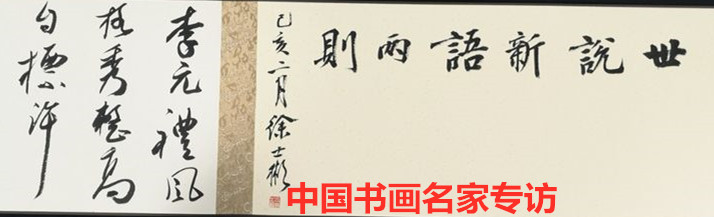 世說新語兩則
己亥二月徐士彬
李元禮風
格秀整高
自標許
中国书画名家专访